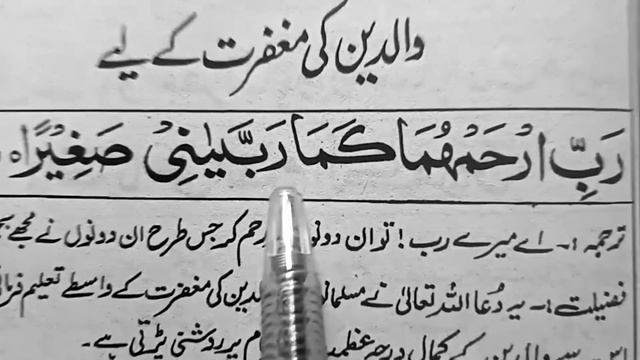 والدین کی مغفرت کے لیے
رَبِّ ارْحَمْهُمَا كَمَا رَبَّيٰنِيْ صَغِيْرًا
ترجمہ :۔ اے میرے رب ! تو ان دونوں رحم کر جس طرح ان دونوں نے مجھے
فضیلت :۔ یہ دُعا اللہ تعالیٰ نے مسلمانوں والدین کی مغفرت کے واسطے تعلیم فرمائی
والدین کے کمال درجہ پر روشنی پڑتی ہے۔